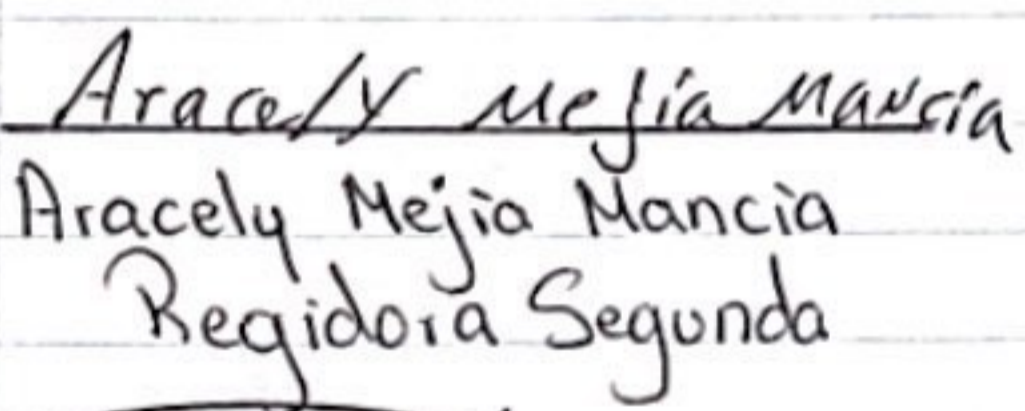 Aracely Mejía Mancía
Aracely Mejia Mancia
Regidora Segunda